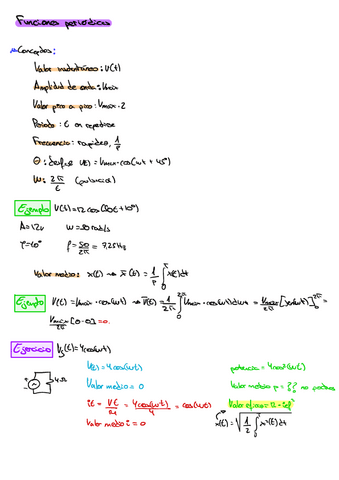 Funciones periódicas
Conceptos:
Valor instantáneo: V(t)
Amplitud de onda: Vmax
Valor pico a pico: Vmax·2
Periodo: t en repetirse
Frecuencia: rapidez, 1/P
θ: desfase V(t) = Vmax·cos(wt + 45°)
W: 2π/t (pulsación)
Ejemplo V(t)=12cos(50t+10°)
A=12v w=50rad/s
φ=10° f=50/2π = 7,95Hz
Valor medio: x(t) → x̄(t) = 1/P ∫₀ᴾ x(t)dt
Ejemplo V(t) = Vmax·cos(wt) → V̄(t) = 1/2π ∫₀^2π Vmax·cos(wt)dwt = Vmax/2π [sen(wt)]₀^2π =
Vmax/2π [0-0] = 0.
Ejercicio Vg(t)=4cos(wt)
4Ω
V(t) = 4cos(wt)
Valor medio = 0
it = Vt/4Ω = 4cos(wt)/4 = cos(wt)
Valor medio i = 0
potencia = 4cos²(wt)
Valor medio p = ?? no podemos
Valor eficaz
x(t) = √(1/2 ∫₀ x²(t)dt